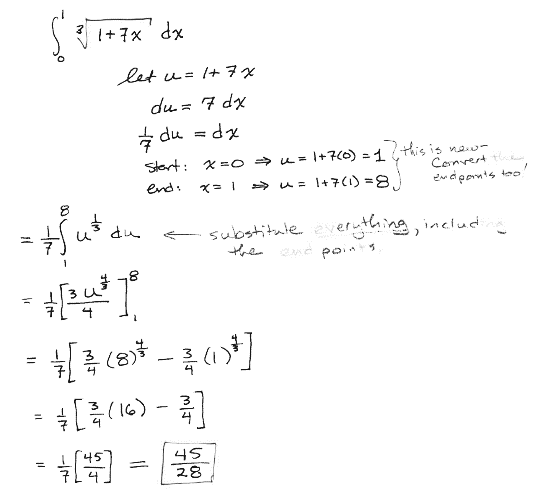 ∫₀¹ ∛(1+7x) dx
let u = 1+7x
du = 7 dx
1/7 du = dx
start: x=0 ⇒ u = 1+7(0) = 1 } this is new-
Convert the
end: x = 1 ⇒ u = 1+7(1) = 8 endpoints too!
= 1/7 ∫₁⁸ u^(1/3) du ← substitute everything, including
the end points.
= 1/7 [3u^(4/3)/4]₁⁸
= 1/7 [3/4 (8)^(4/3) − 3/4 (1)^(4/3)]
= 1/7 [3/4 (16) − 3/4]
= 1/7 [45/4] = 45/28